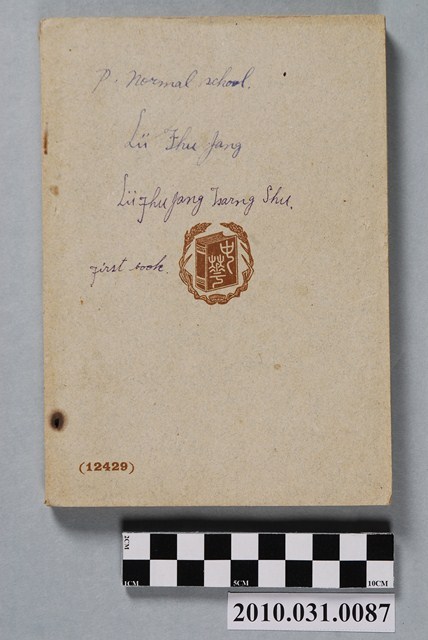 P. Normal school.
Lü Zhu Jang
Lü Zhu Jang Tsarng Shu.
first book.
中華
(12429)
2CM
1CM
5CM
10CM
2010.031.0087